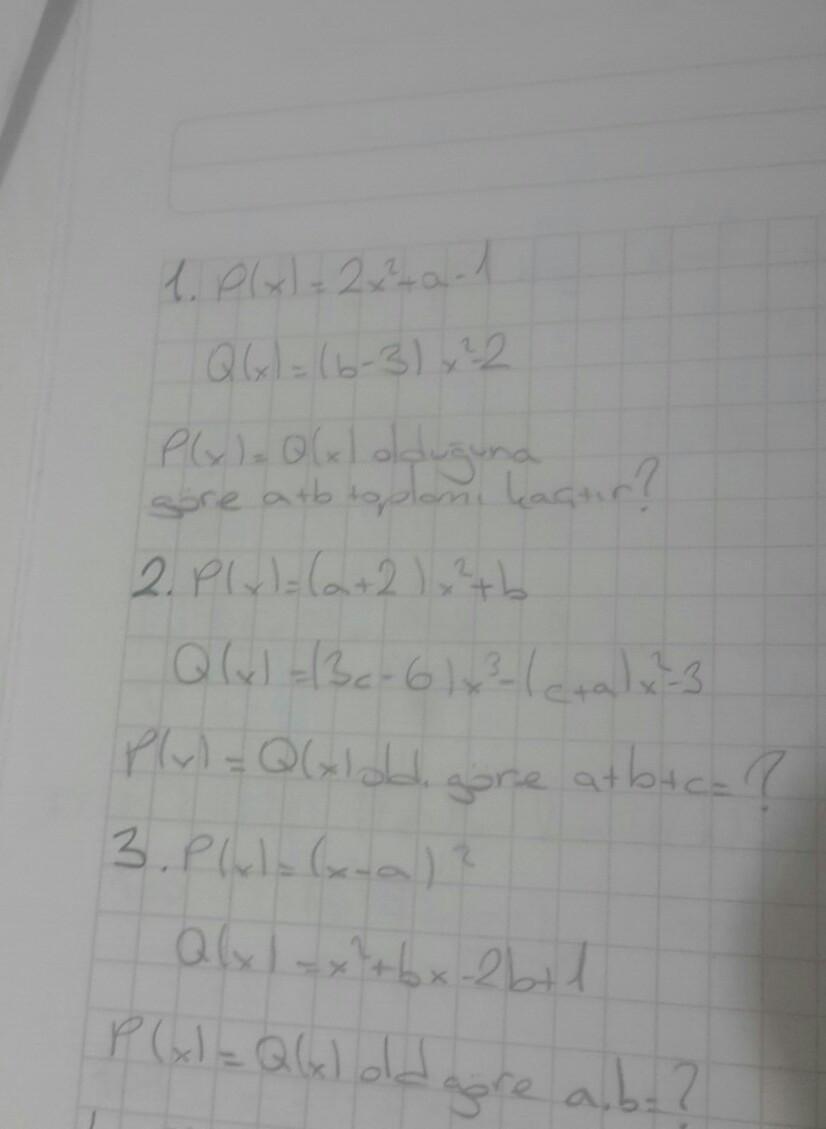 1. P(x) = 2x²+a-1
Q(x) = (b-3) x²-2
P(x) = Q(x) olduğuna
göre a+b toplamı kaçtır?
2. P(x) = (a+2) x²+b
Q(x) = (3c-6)x³-(c+a)x²-3
P(x) = Q(x) old. göre a+b+c=?
3. P(x) = (x-a)²
Q(x) = x²+bx-2b+1
P(x) = Q(x) old göre a.b=?